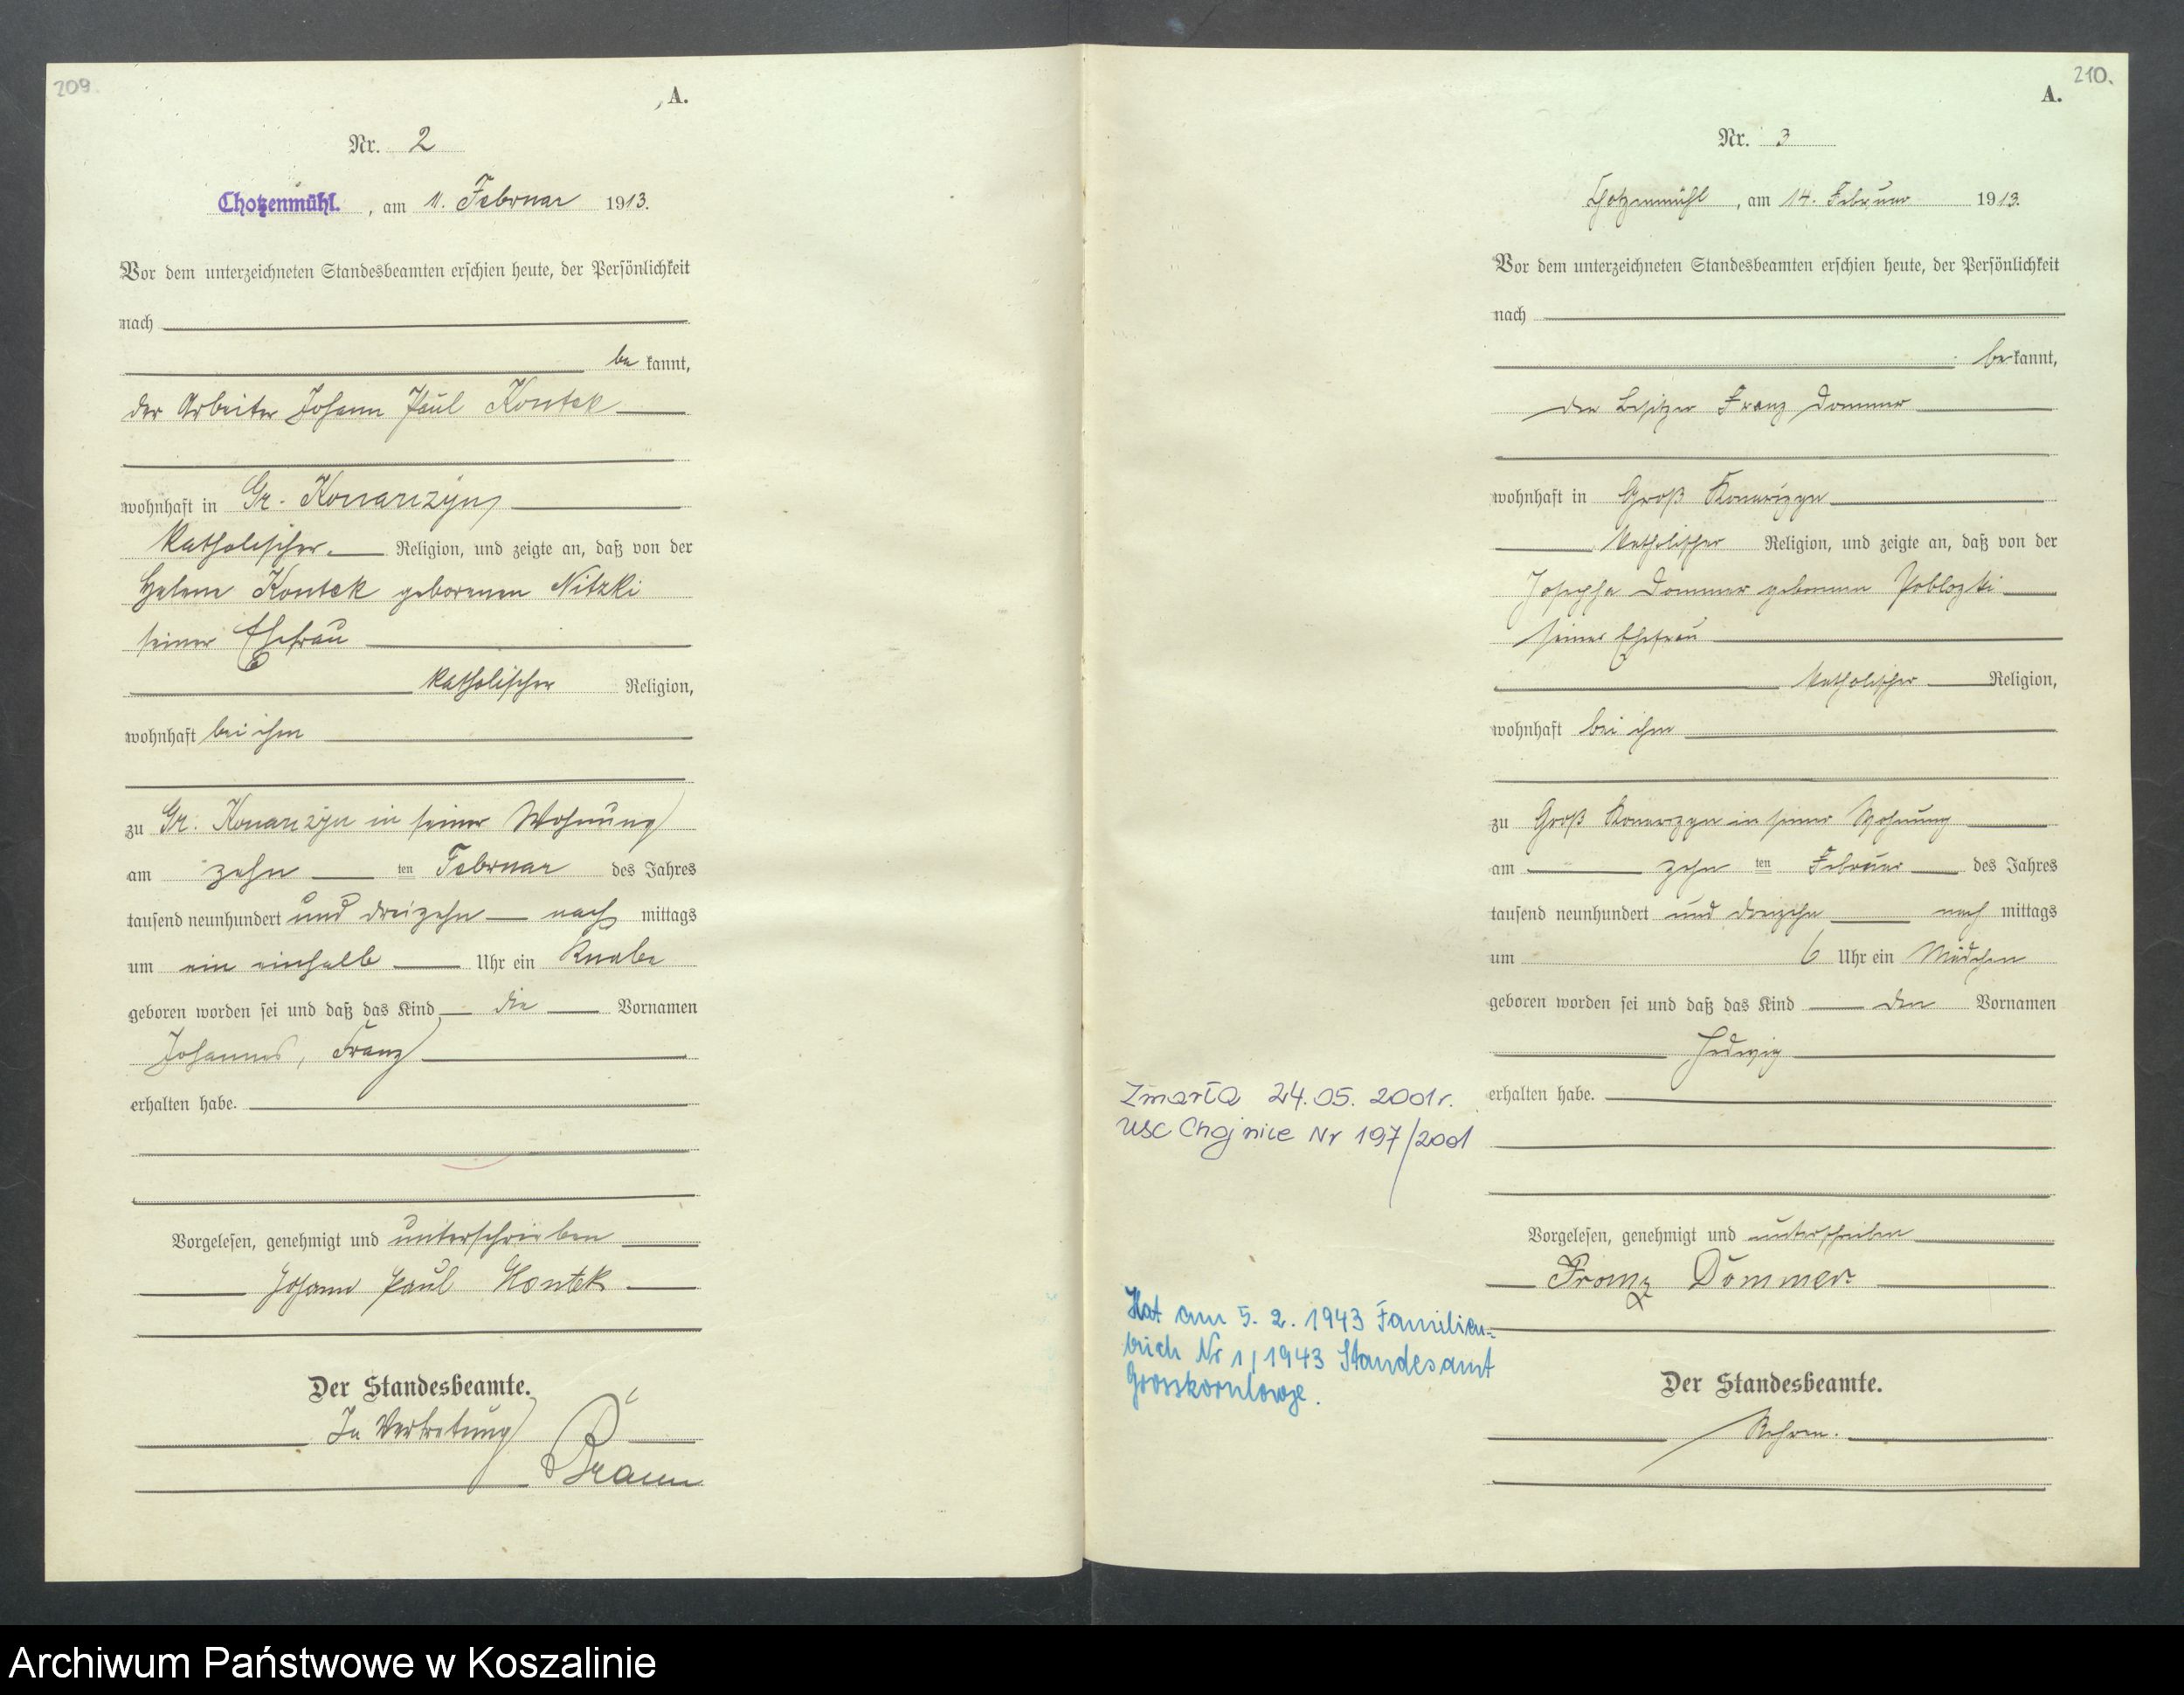 209.
A.
Nr. 2
Chotzenmühl. , am 11. Februar 1913.
Vor dem unterzeichneten Standesbeamten erschien heute, der Persönlichkeit
nach
be kannt,
der Arbeiter Johann Paul Kontek
wohnhaft in Gr. Konarzyn,
katholischer Religion, und zeigte an, daß von der
Helene Kontek geborenen Nitzki
seiner Ehefrau
katholischer Religion,
wohnhaft bei ihm
zu Gr. Konarzyn in seiner Wohnung
am zehn ten Februar des Jahres
tausend neunhundert und dreizehn nach mittags
um ein einhalb Uhr ein Knabe
geboren worden sei und daß das Kind die Vornamen
Johannes, Franz
erhalten habe.
Vorgelesen, genehmigt und unterschrieben
Johann Paul Kontek
Der Standesbeamte.
In Vertretung
Braun
210.
A.
Nr. 3
Chotzenmühl , am 14. Februar 1913.
Vor dem unterzeichneten Standesbeamten erschien heute, der Persönlichkeit
nach
bekannt,
der Besitzer Franz Dommer
wohnhaft in Groß Konarzyn
katholischer Religion, und zeigte an, daß von der
Josepha Dommer geborenen Poblozki
seiner Ehefrau
katholischer Religion,
wohnhaft bei ihm
zu Groß Konarzyn in seiner Wohnung
am zehn ten Februar des Jahres
tausend neunhundert und dreizehn nach mittags
um 6 Uhr ein Mädchen
geboren worden sei und daß das Kind den Vornamen
Hedwig
erhalten habe.
Zmarła 24.05.2001r.
USC Chojnice Nr 197/2001
Vorgelesen, genehmigt und unterschrieben
Franz Dommer
Hat am 5.2.1943 Familien-
buch Nr 1/1943 Standesamt
Der Standesbeamte.
Archiwum Państwowe w Koszalinie